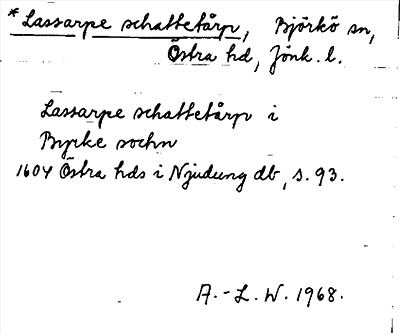 *Lassarpe schattetårp, Björkö sn,
Östra hd, Jönk. l.
Lassarpe schattetårp i
Byrke sochn
1604 Östra hds i Njudung db, s. 93.
A.-L. W. 1968.